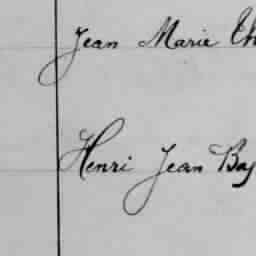 Jean Marie
Henri Jean